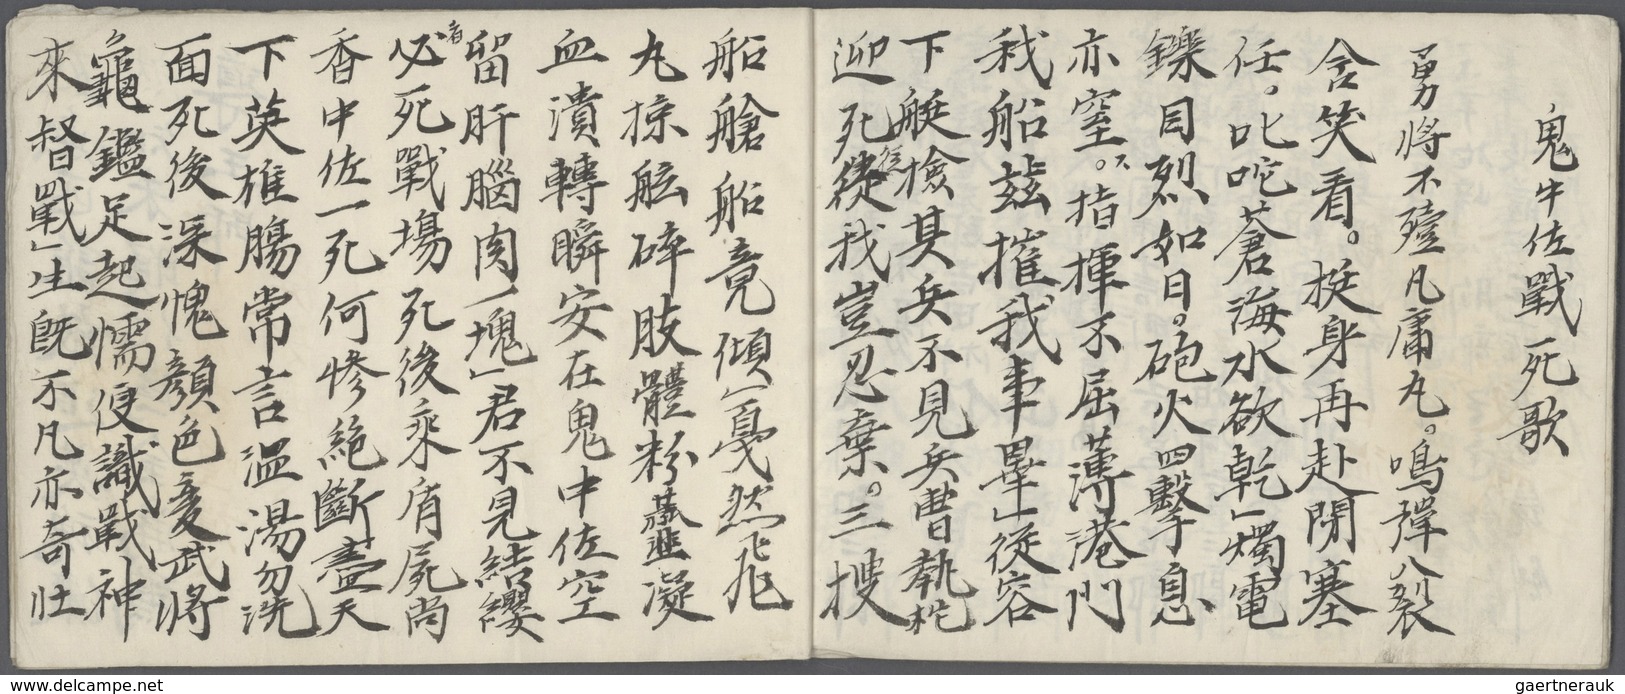 鬼中佐戰死歌
勇將不殪凡庸丸。鳴彈八裂
含笑看。挺身再赴閉塞
任。叱咤蒼海水欲乾」燭電
鑠目烈如日。砲火四擊息
亦窒。指揮不屈薄港門
我船玆摧我事畢」從容
下艇檢其兵不見兵曹執杔
迎死從我豈忍棄。三搜
船艙船竟傾」戛然飛
丸掠舷碎肢體粉虀凝
血潰轉瞬安在鬼中佐空
留肝腦肉一塊」君不見結纓
必死戰場死後乘盾屍尚
者
香中佐一死何慘絕斷盡天
下英雄腸常言溫湯勿洗
面死後深愧顏色變武將
龜鑑足起懦便識戰神
來督戰」生旣不凡亦奇壯
gaertnerauk